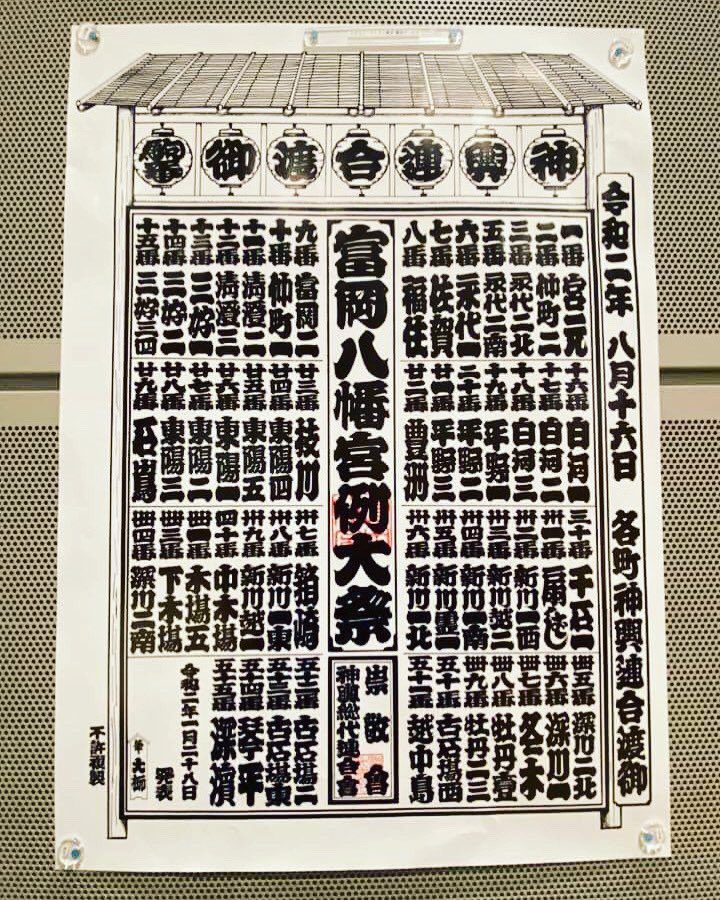 神輿連合渡御
令和二年 八月十六日 各町神輿連合渡御
一番 宮元
二番 仲町二
三番 永代二北
五番 永代二南
六番 永代一
七番 佐賀
八番 福住
十六番 白河一
十七番 白河二
十八番 白河三
十九番 平野一
二十番 平野二
廿一番 平野三
廿二番 豊洲
三十番 千石一
卅一番 扇ばし
卅二番 新川一西
卅三番 新川越二
卅四番 新川一南
卅五番 新川霊一
卅六番 新川一北
卌五番 深川二北
卌六番 深川一
卌七番 冬木
卌八番 牡丹壹
卌九番 牡丹二三
五十番 古石場西
五十一番 越中島
富岡八幡宮例大祭
崇敬会
神輿総代連合会
九番 富岡二
十番 仲町一
十一番 清澄二
十二番 清澄三
十三番 三好一
十四番 三好二
十五番 三好三四
廿三番 枝川
廿四番 東陽四
廿五番 東陽五
廿六番 東陽一
廿七番 東陽二
廿八番 東陽三
廿九番 石島
卅七番 箱崎
卅八番 新川一東
卅九番 新川越
四十番 中木場
卌一番 木場五
卌三番 下木場
卌四番 深川二南
五十二番 古石場二
五十三番 古石場東
五十四番 琴平
五十五番 深濱
令和二年一月二十八日 発表
不許複製